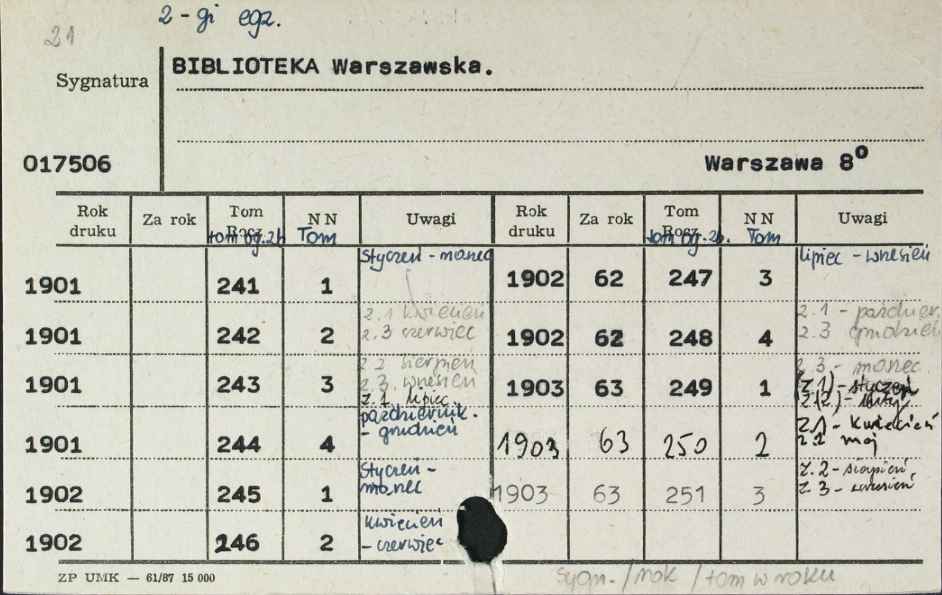 21
2-gi egz.
Sygnatura
BIBLIOTEKA Warszawska.
017506
Warszawa 8°
Rok druku Za rok Tom Rocz. tom og. zb. NN Tom Uwagi Rok druku Za rok Tom Rocz. tom og. zb. NN Tom Uwagi
1901 241 1 styczeń - marzec 1902 62 247 3 lipiec - wrzesień
1901 242 2 z.1 kwiecień z.3 czerwiec 1902 62 248 4 z.1 - paździer. z.3 grudzień
1901 243 3 z.2 sierpień z.3. wrzesień z.1. lipiec 1903 63 249 1 z.3 - marzec (z.1) - styczeń (z.2) - luty
1901 244 4 październik - grudzień 1903 63 250 2 z.1 - kwiecień z.2 maj
1902 245 1 styczeń - marzec 1903 63 251 3 z.2 - sierpień z.3 - wrzesień
1902 246 2 kwiecień - czerwiec
ZP UMK — 61/87 15 000
sygn. / rok / tom w roku